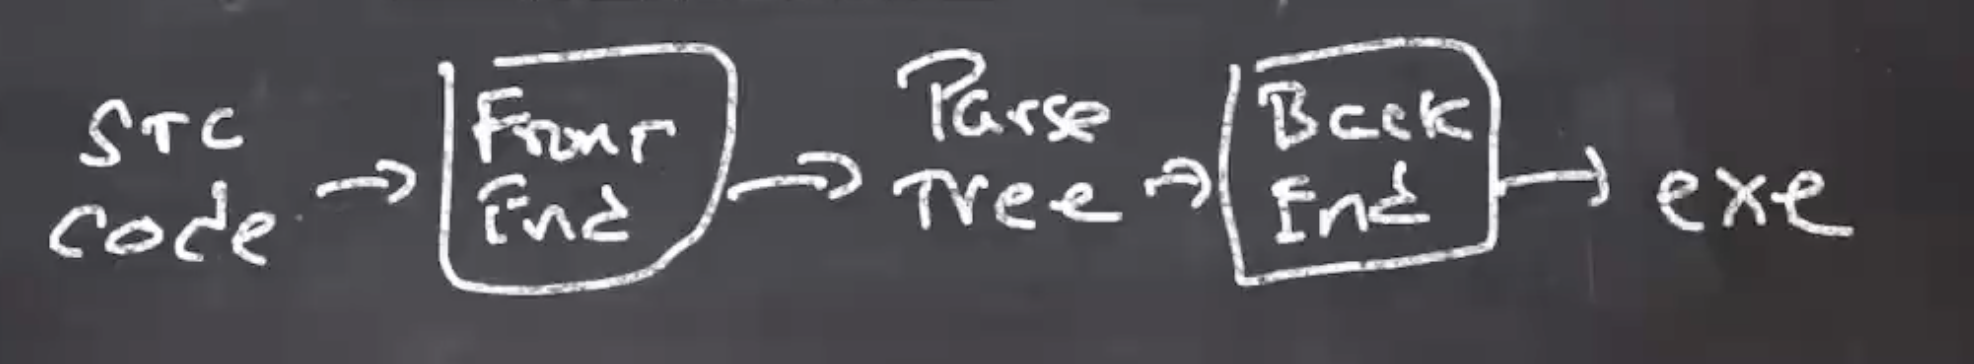 src
code
Front
End
Parse
Tree
Back
End
exe